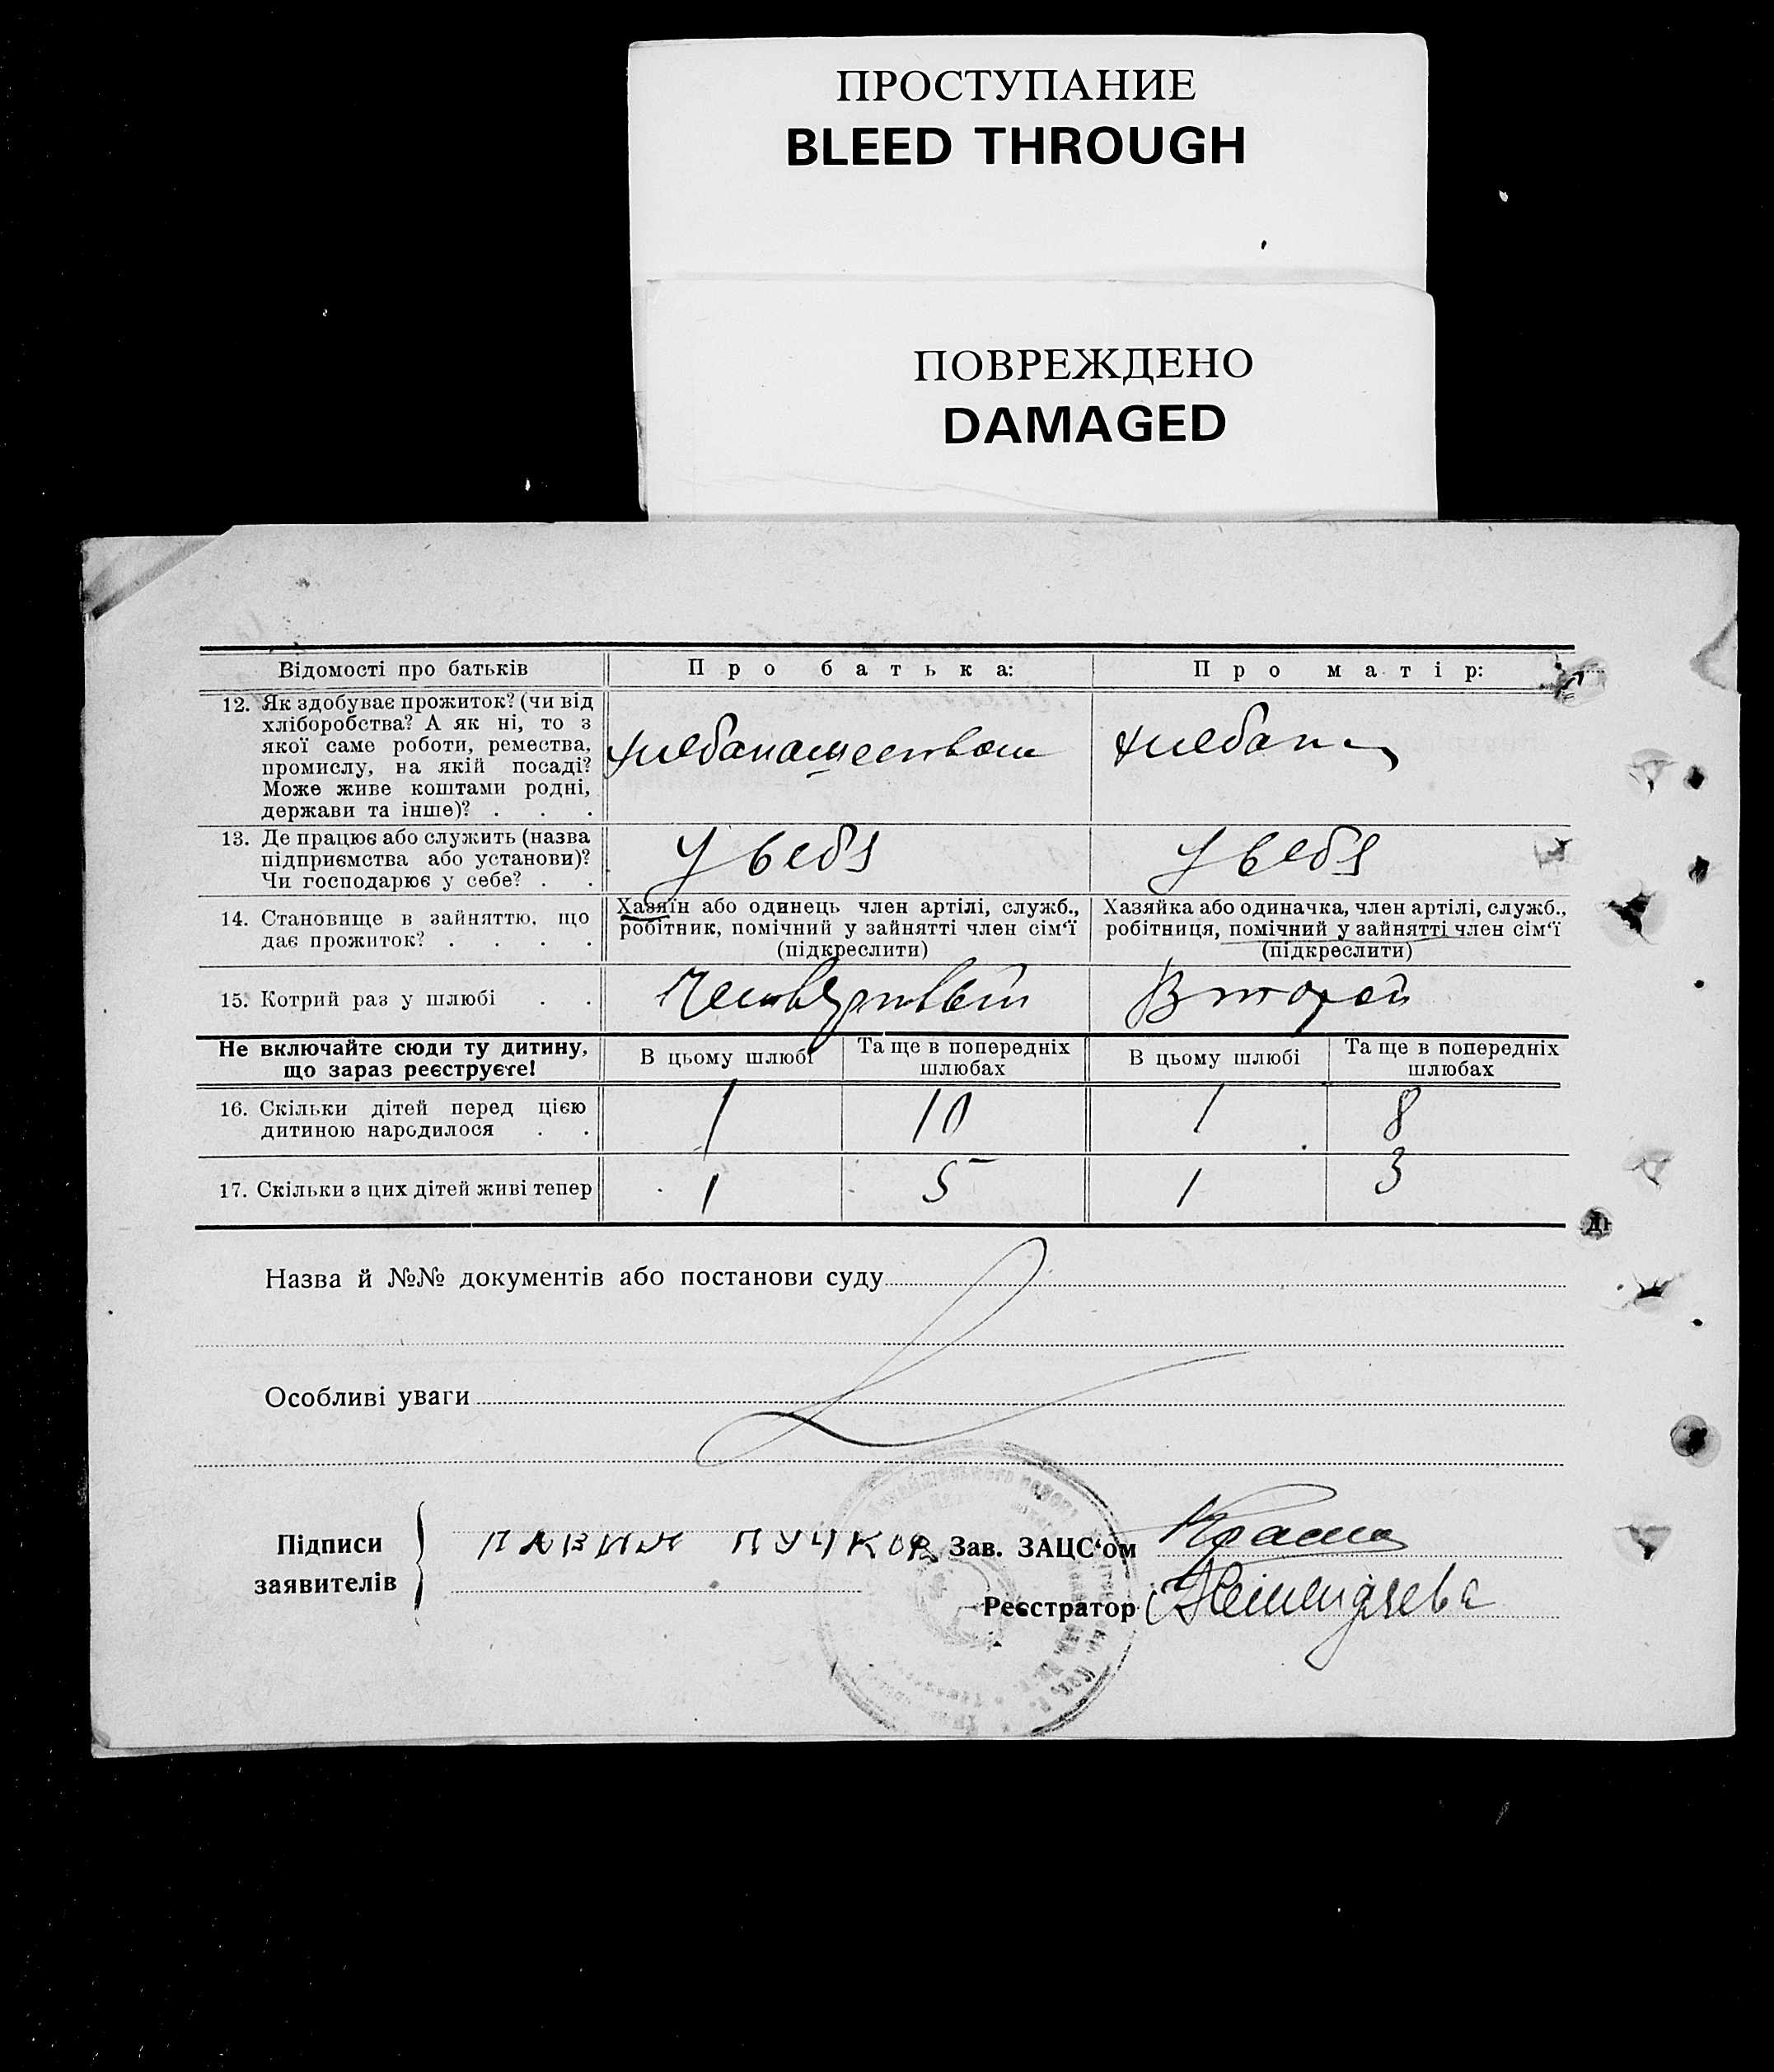 ПРОСТУПАНИЕ
BLEED THROUGH
ПОВРЕЖДЕНО
DAMAGED
Відомості про батьків
Про батька:
Про матір:
12. Як здобуває прожиток? (чи від
хліборобства? А як ні, то з
якої саме роботи, ремества,
промислу, на якій посаді?
Може живе коштами родні,
держави та інше)? . . .
хлебопашеством
хлебоп
13. Де працює або служить (назва
підприємства або установи)?
Чи господарює у себе? . .
У себя
У себя
14. Становище в зайняттю, що
дає прожиток? . . . .
Хазяїн або одинець член артілі, служб.,
робітник, помічний у зайнятті член сім'ї
(підкреслити)
Хазяйка або одиначка, член артілі, служб.,
робітниця, помічний у зайнятті член сім'ї
(підкреслити)
15. Котрий раз у шлюбі . .
Четвертый
Второй
Не включайте сюди ту дитину,
що зараз реєструєте!
В цьому шлюбі
Та ще в попередніх
шлюбах
В цьому шлюбі
Та ще в попередніх
шлюбах
16. Скільки дітей перед цією
дитиною народилося . .
1
10
1
8
17. Скільки з цих дітей живі тепер
1
5
1
3
Назва й №№ документів або постанови суду
Особливі уваги
Підписи
заявителів
ПУЧКОВ
Зав. ЗАЦС'ом
Реєстратор